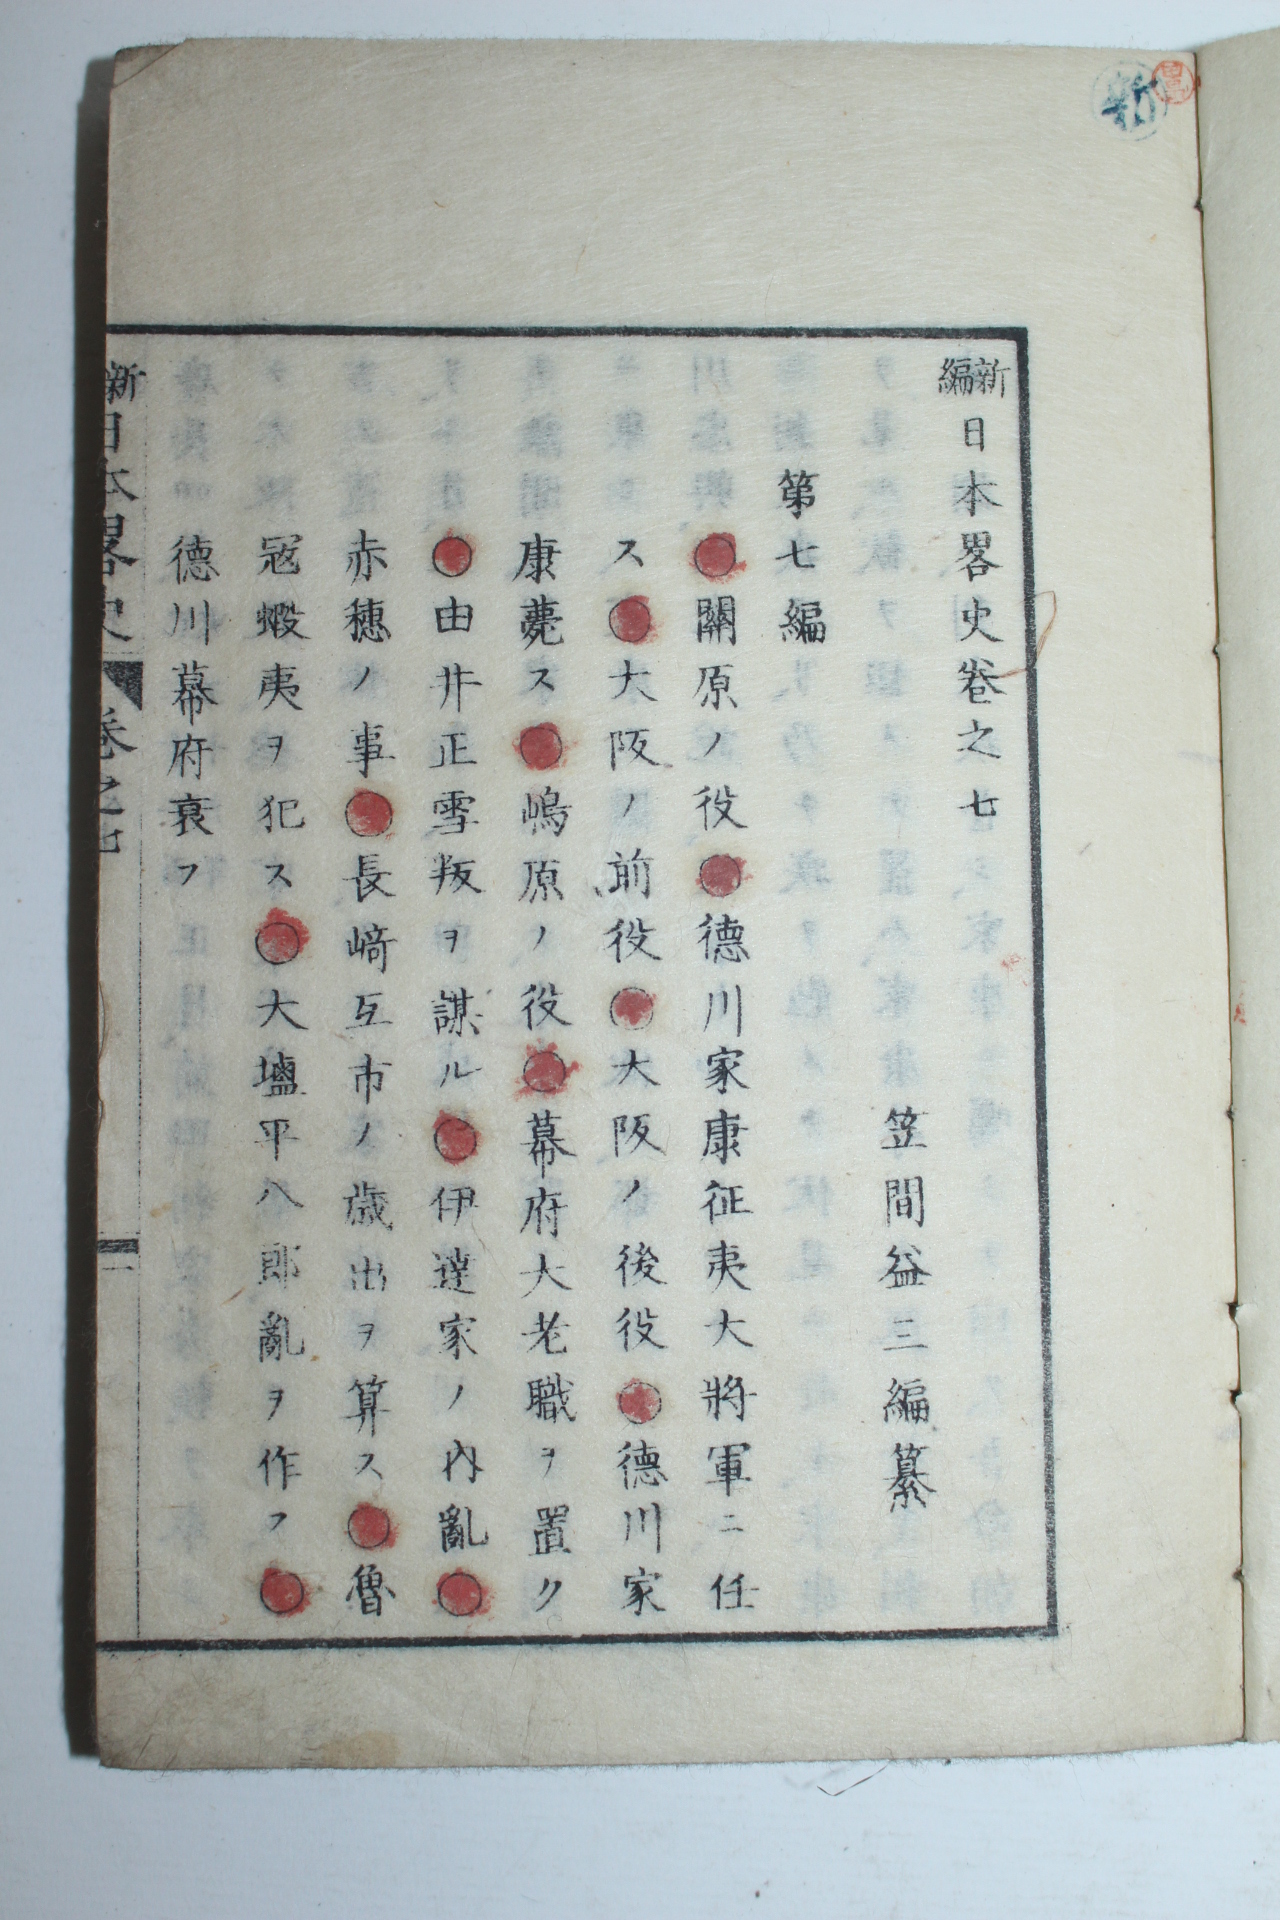 新編日本畧史卷之七
笠間益三編纂
第七編
○關原ノ役○德川家康征夷大將軍ニ任
ス○大阪ノ前役○大阪ノ後役○德川家
康薨ス○嶋原ノ役○幕府大老職ヲ置ク
○由井正雪叛ヲ謀ル○伊達家ノ內亂○
赤穗ノ事○長﨑互市ノ歲出ヲ算ス○魯
寇蝦夷ヲ犯ス○大塩平八郎亂ヲ作フ○
德川幕府衰フ
新日本畧史 卷之七 一
新